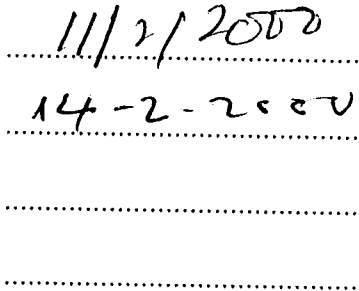 11/2/2000
14-2-2000